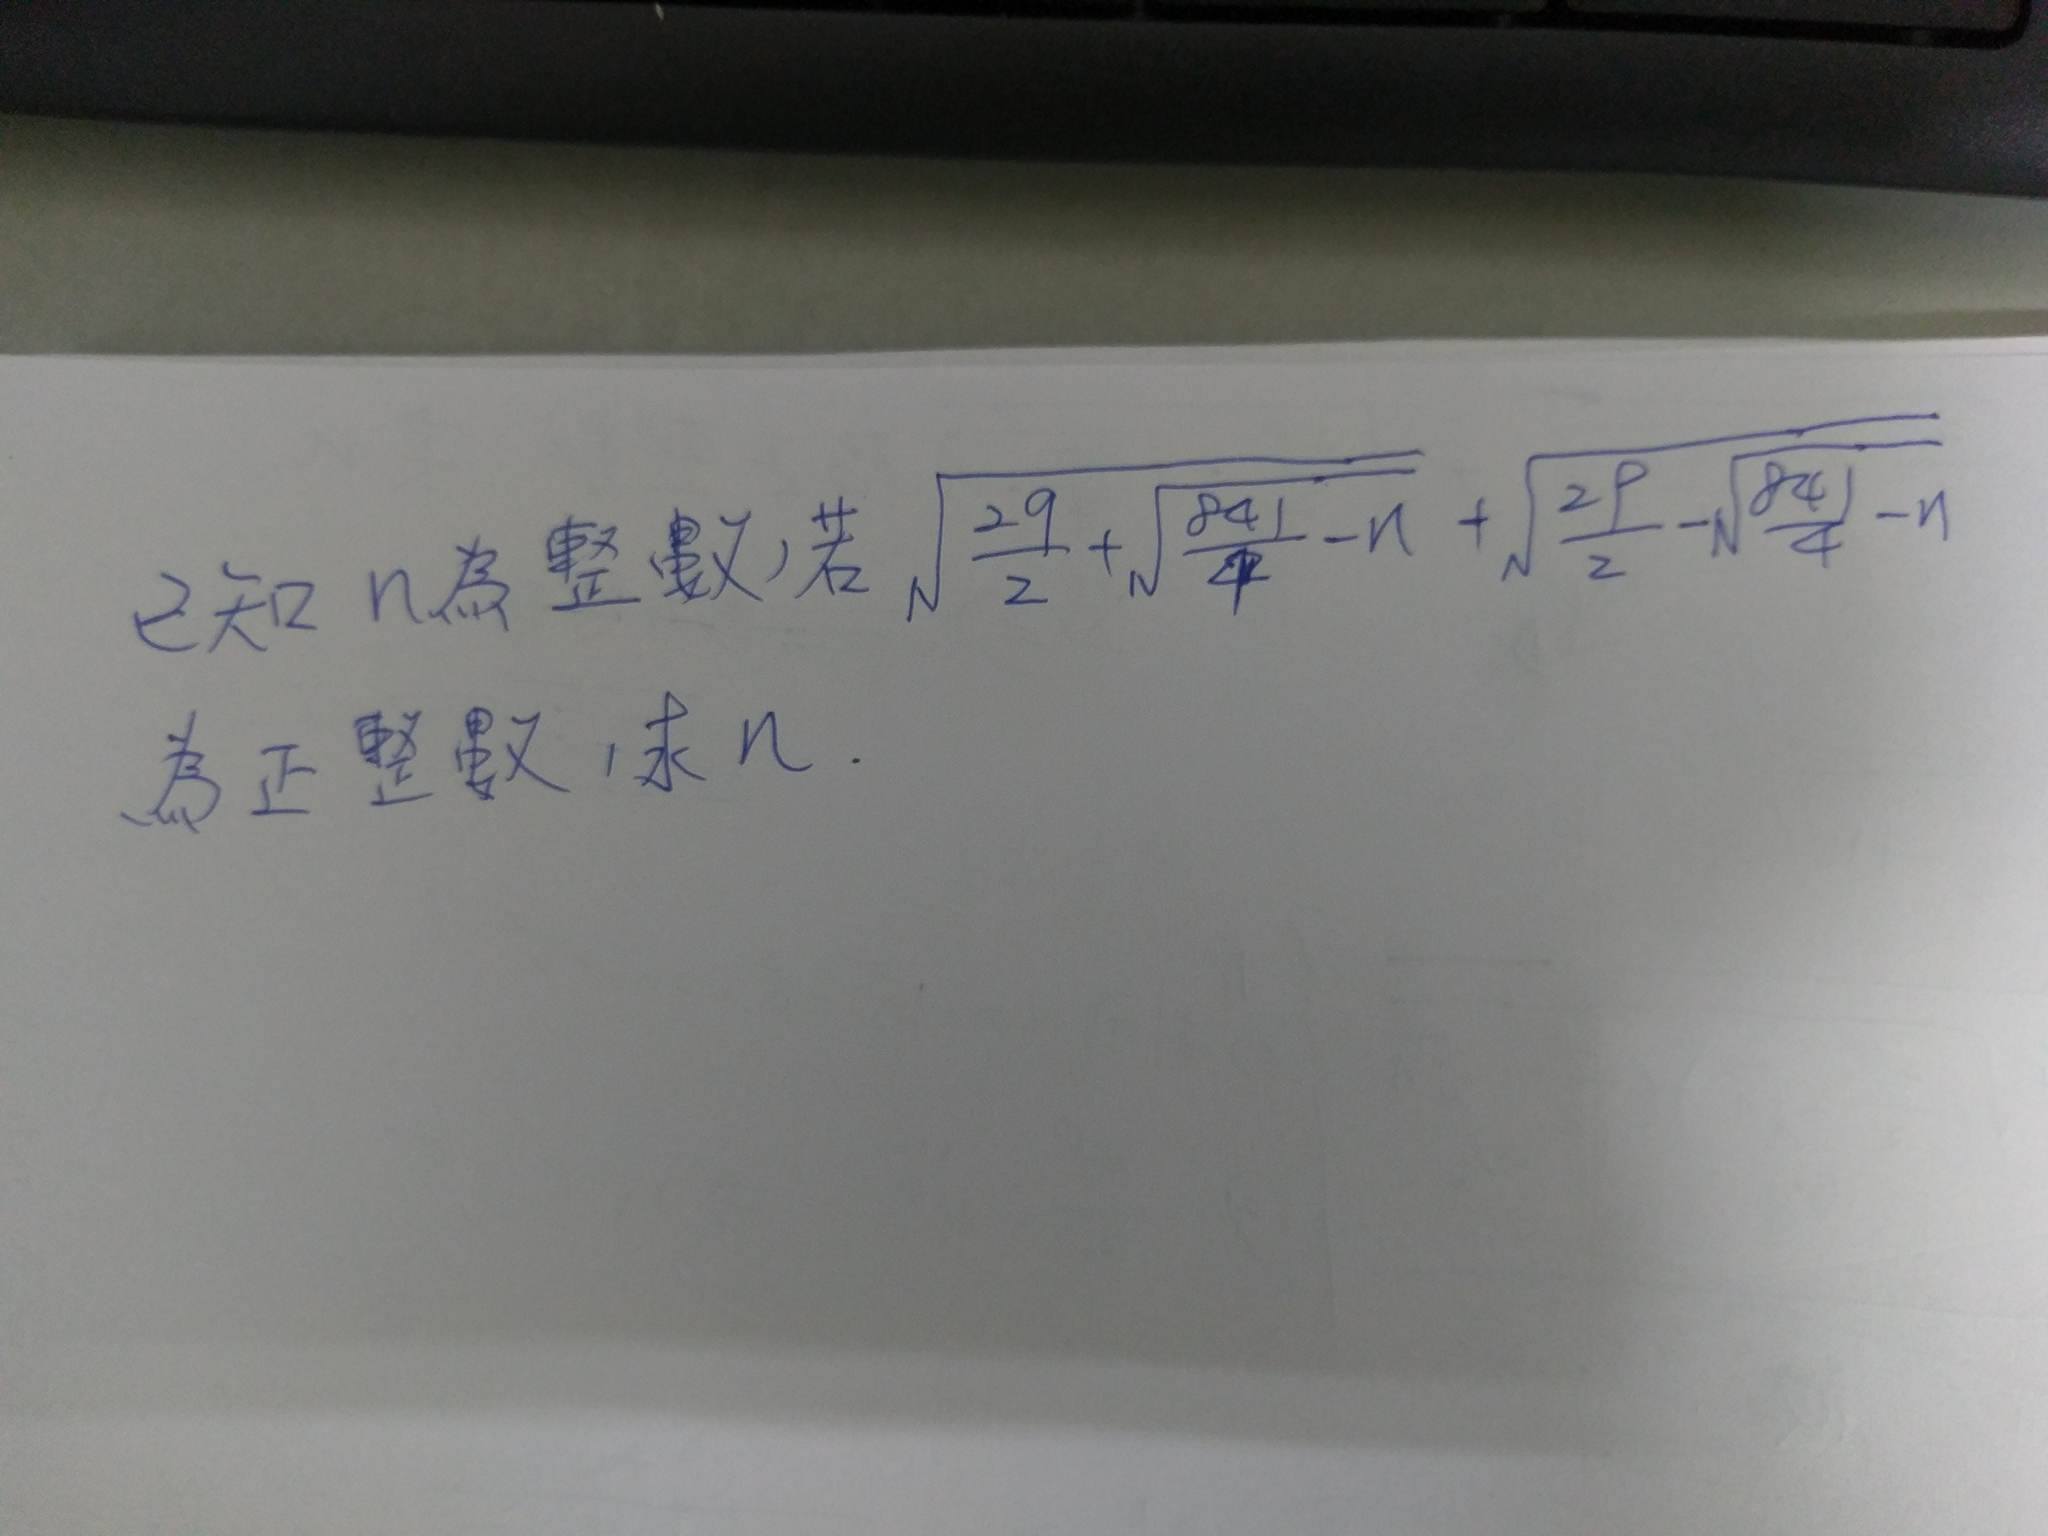 已知 n為整數,若 √(29/2 + √(841/4 - n)) + √(29/2 - √(841/4 - n))
為正整數,求n.